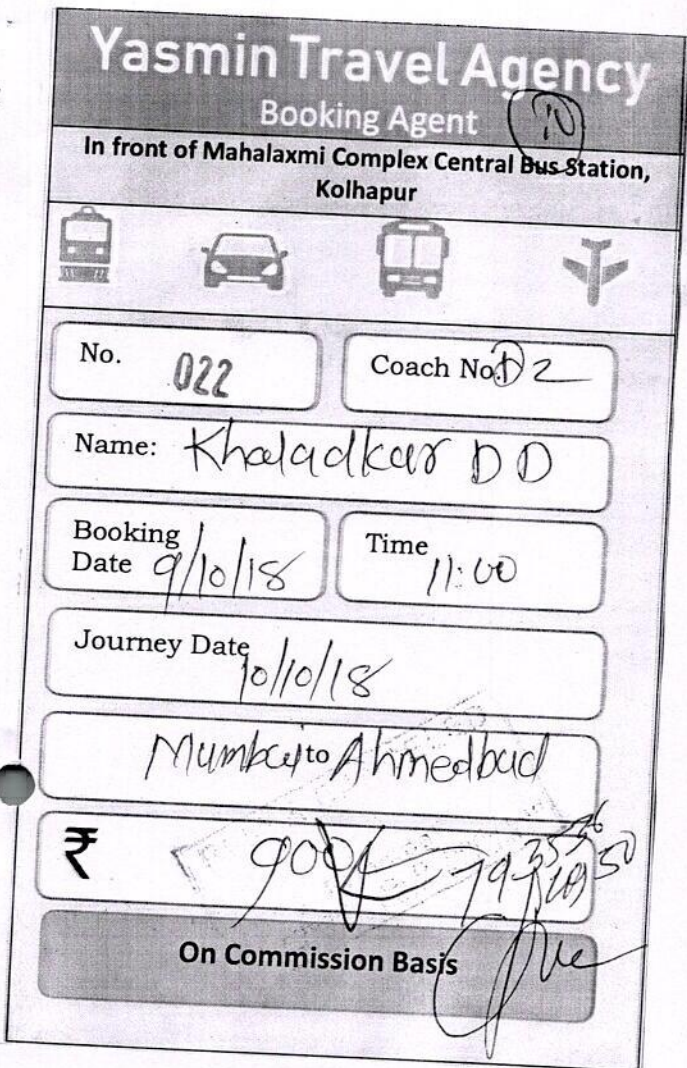 Yasmin Travel Agency
Booking Agent
In front of Mahalaxmi Complex Central Bus Station,
Kolhapur
No. 022
Coach No. D 2
Name: Khaladkar D D
Booking
Date 9/10/18
Time 11:00
Journey Date 10/10/18
Mumbai to Ahmedbad
₹ 900/-
On Commission Basis